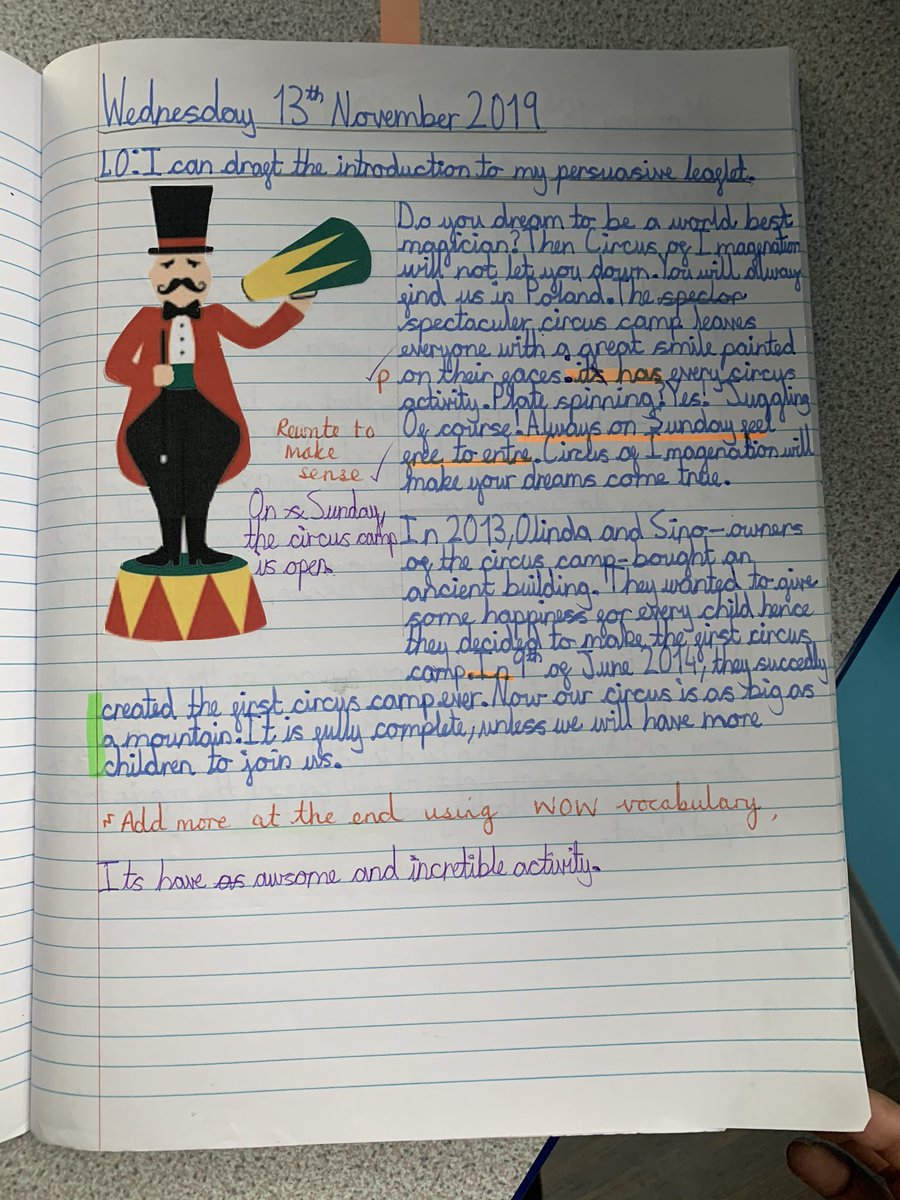 Wednesday 13th November 2019
LO: I can draft the introduction to my persuasive leaflet.
Do you dream to be a world best
magician? Then Circus of Imagenation
will not let you down. You will always
find us in Poland. The spectop
spectaculer circus camp leaves
everyone with a great smile painted
on their faces. its has every circus
activity. Plate spinning? Yes! Juggling
Of course! Always on Sunday feel
free to entre. Circus of Imagenation will
make your dreams come true.
p
Rewrite to
make
sense
On a Sunday,
the circus camp
is open.
In 2013, Olinda and Sino-owners
of the circus camp-bought an
ancient building. They wanted to give
some happiness for every child hence
they decided to make the first circus
camp. In 9th of June 2014, they succedly
created the first circus camp ever. Now our circus is as big as
a mountain! It is fully complete, unless we will have more
children to join us.
Add more at the end using WOW vocabulary.
Its have as awsome and incretible activity.